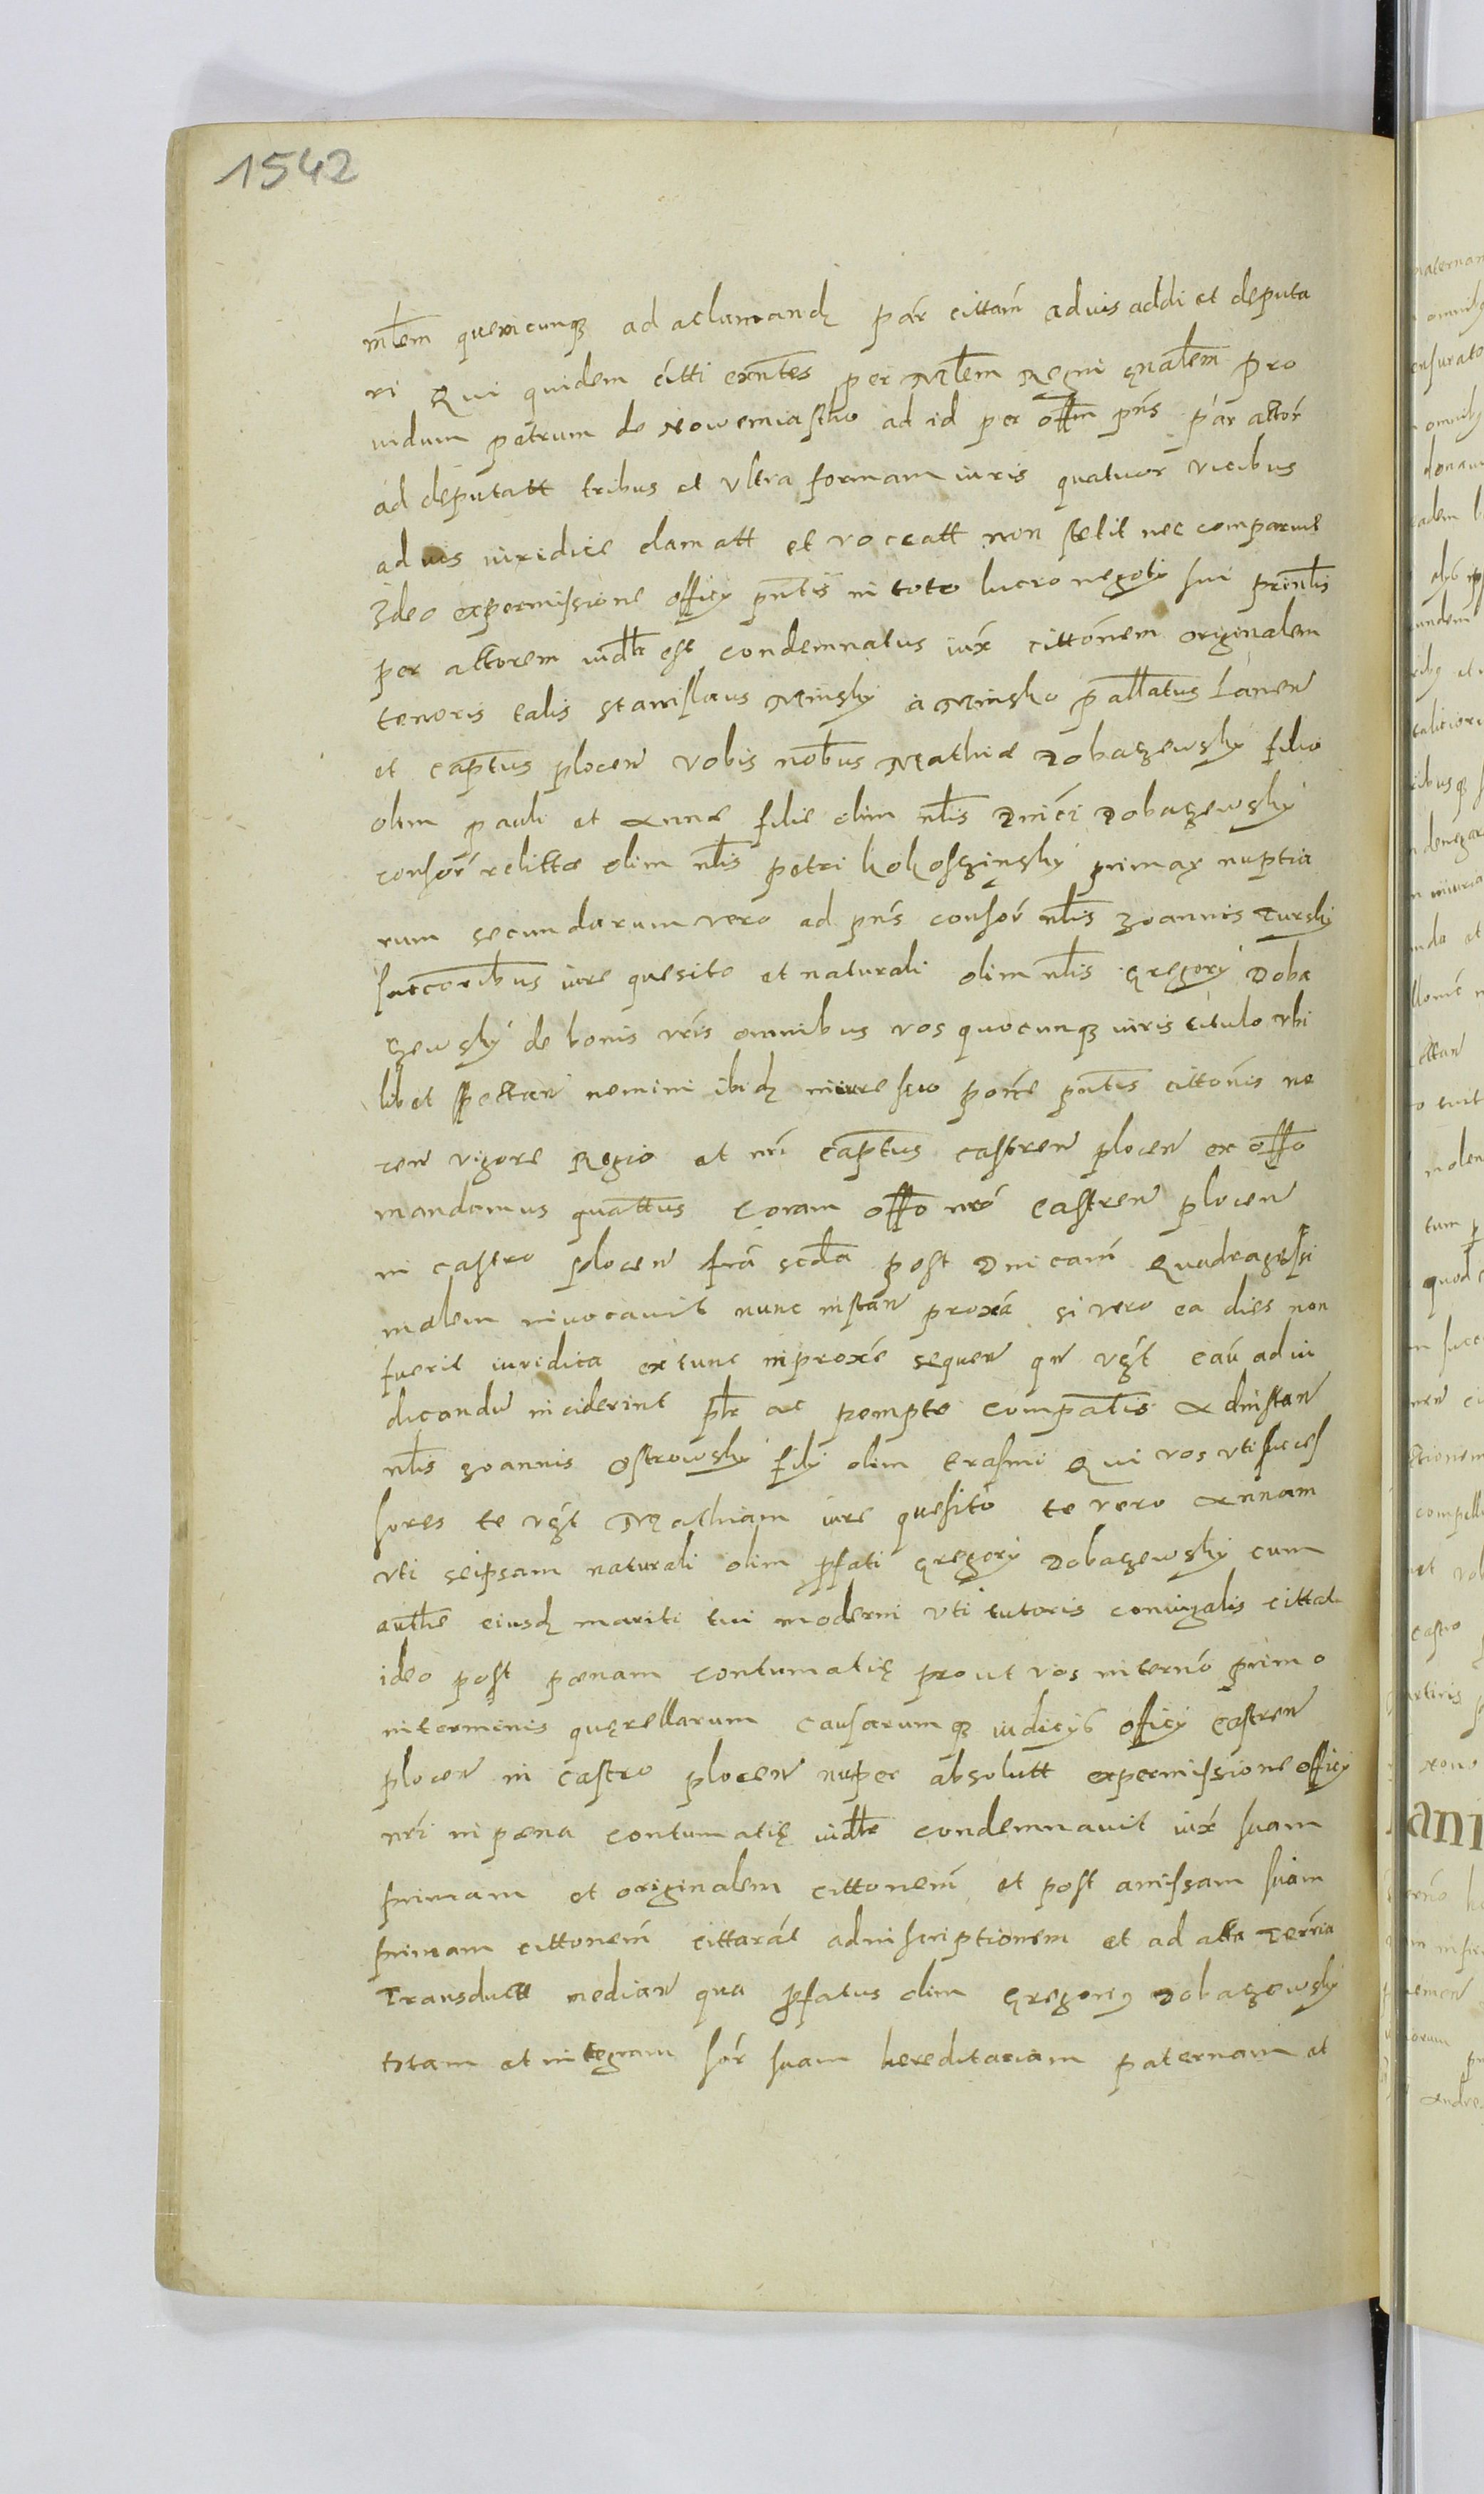 1542
mlem quemcunq ad aclamand par cittam ad ius addi et deputa
ri Qui quidem citti exntes per Mlem Regni gnalem pro
uidum petrum de Nowemiastho ad id per offm pns par actor
ad deputatt tribus et vltra formam iuris quatuor vicibus
ad uis iuridice clamatt et voccatt non stetit nec comparuit
Ideo expermissione officy pntis in toto lucro negoty sui prinlis
per actorem iudlr est condemnatus iux cittonem originalem
tenoris talis Stanislaus Minsky a Minsko pallatus Lancn
et captus plocen vobis nobus Mathie Dobaczewsky filio
olim pauli et Anne filie olim nlis Dnici Dobaczewsky
consor relicte olim nlis petri kokosczinsky primar nuptia
rum secundarum vero ad pns consor nlis Joannis Tursky
succoribus iure quesito et naturali olim nlis Gregory Doba
czewsky de bonis vris omnibus vos quocunq iuris titulo vbi
libet spectan nemini ibid in iure suo porte pntis cittonis no
cen vigore Regio et nri captus castren plocen ex offo
mandamus quattus Coram offo nro Castren plocen
in castro plocen fria scda post Dnicam Quadragessi
malem inuocauit nunc instan proxa si vero ea dies non
fuerit iuridica extunc in proxe sequen qn vgt cau ad iu
dicandu inciderint plr ac pempte compatis Ad instan
nlis Joannis Ostrowsky fily olim Erasmi Qui vos vti succes
sores te vgt Mathiam iure quesito te vero Annam
vti seipsam naturali olim pfati Gregory Dobaczewsky cum
authe eiusd mariti tui moderni vti tutoris coniugalis cittat
ideo post pænam contumatię prout vos in termo primo
in terminis quęrellarum Causarumq iudicys officy Castren
plocen in castro plocen nuper absolutt expermissione officy
nri in pæna contumatię iudlr condemnauit iux suam
primam et originalem cittonem et post amissam suam
primam cittonem cittarat ad inscriptionem et ad acta Terria
Transductt median qua pfatus olim Gregorius Dobaczewsky
totam et integram sor suam hereditariam paternam et